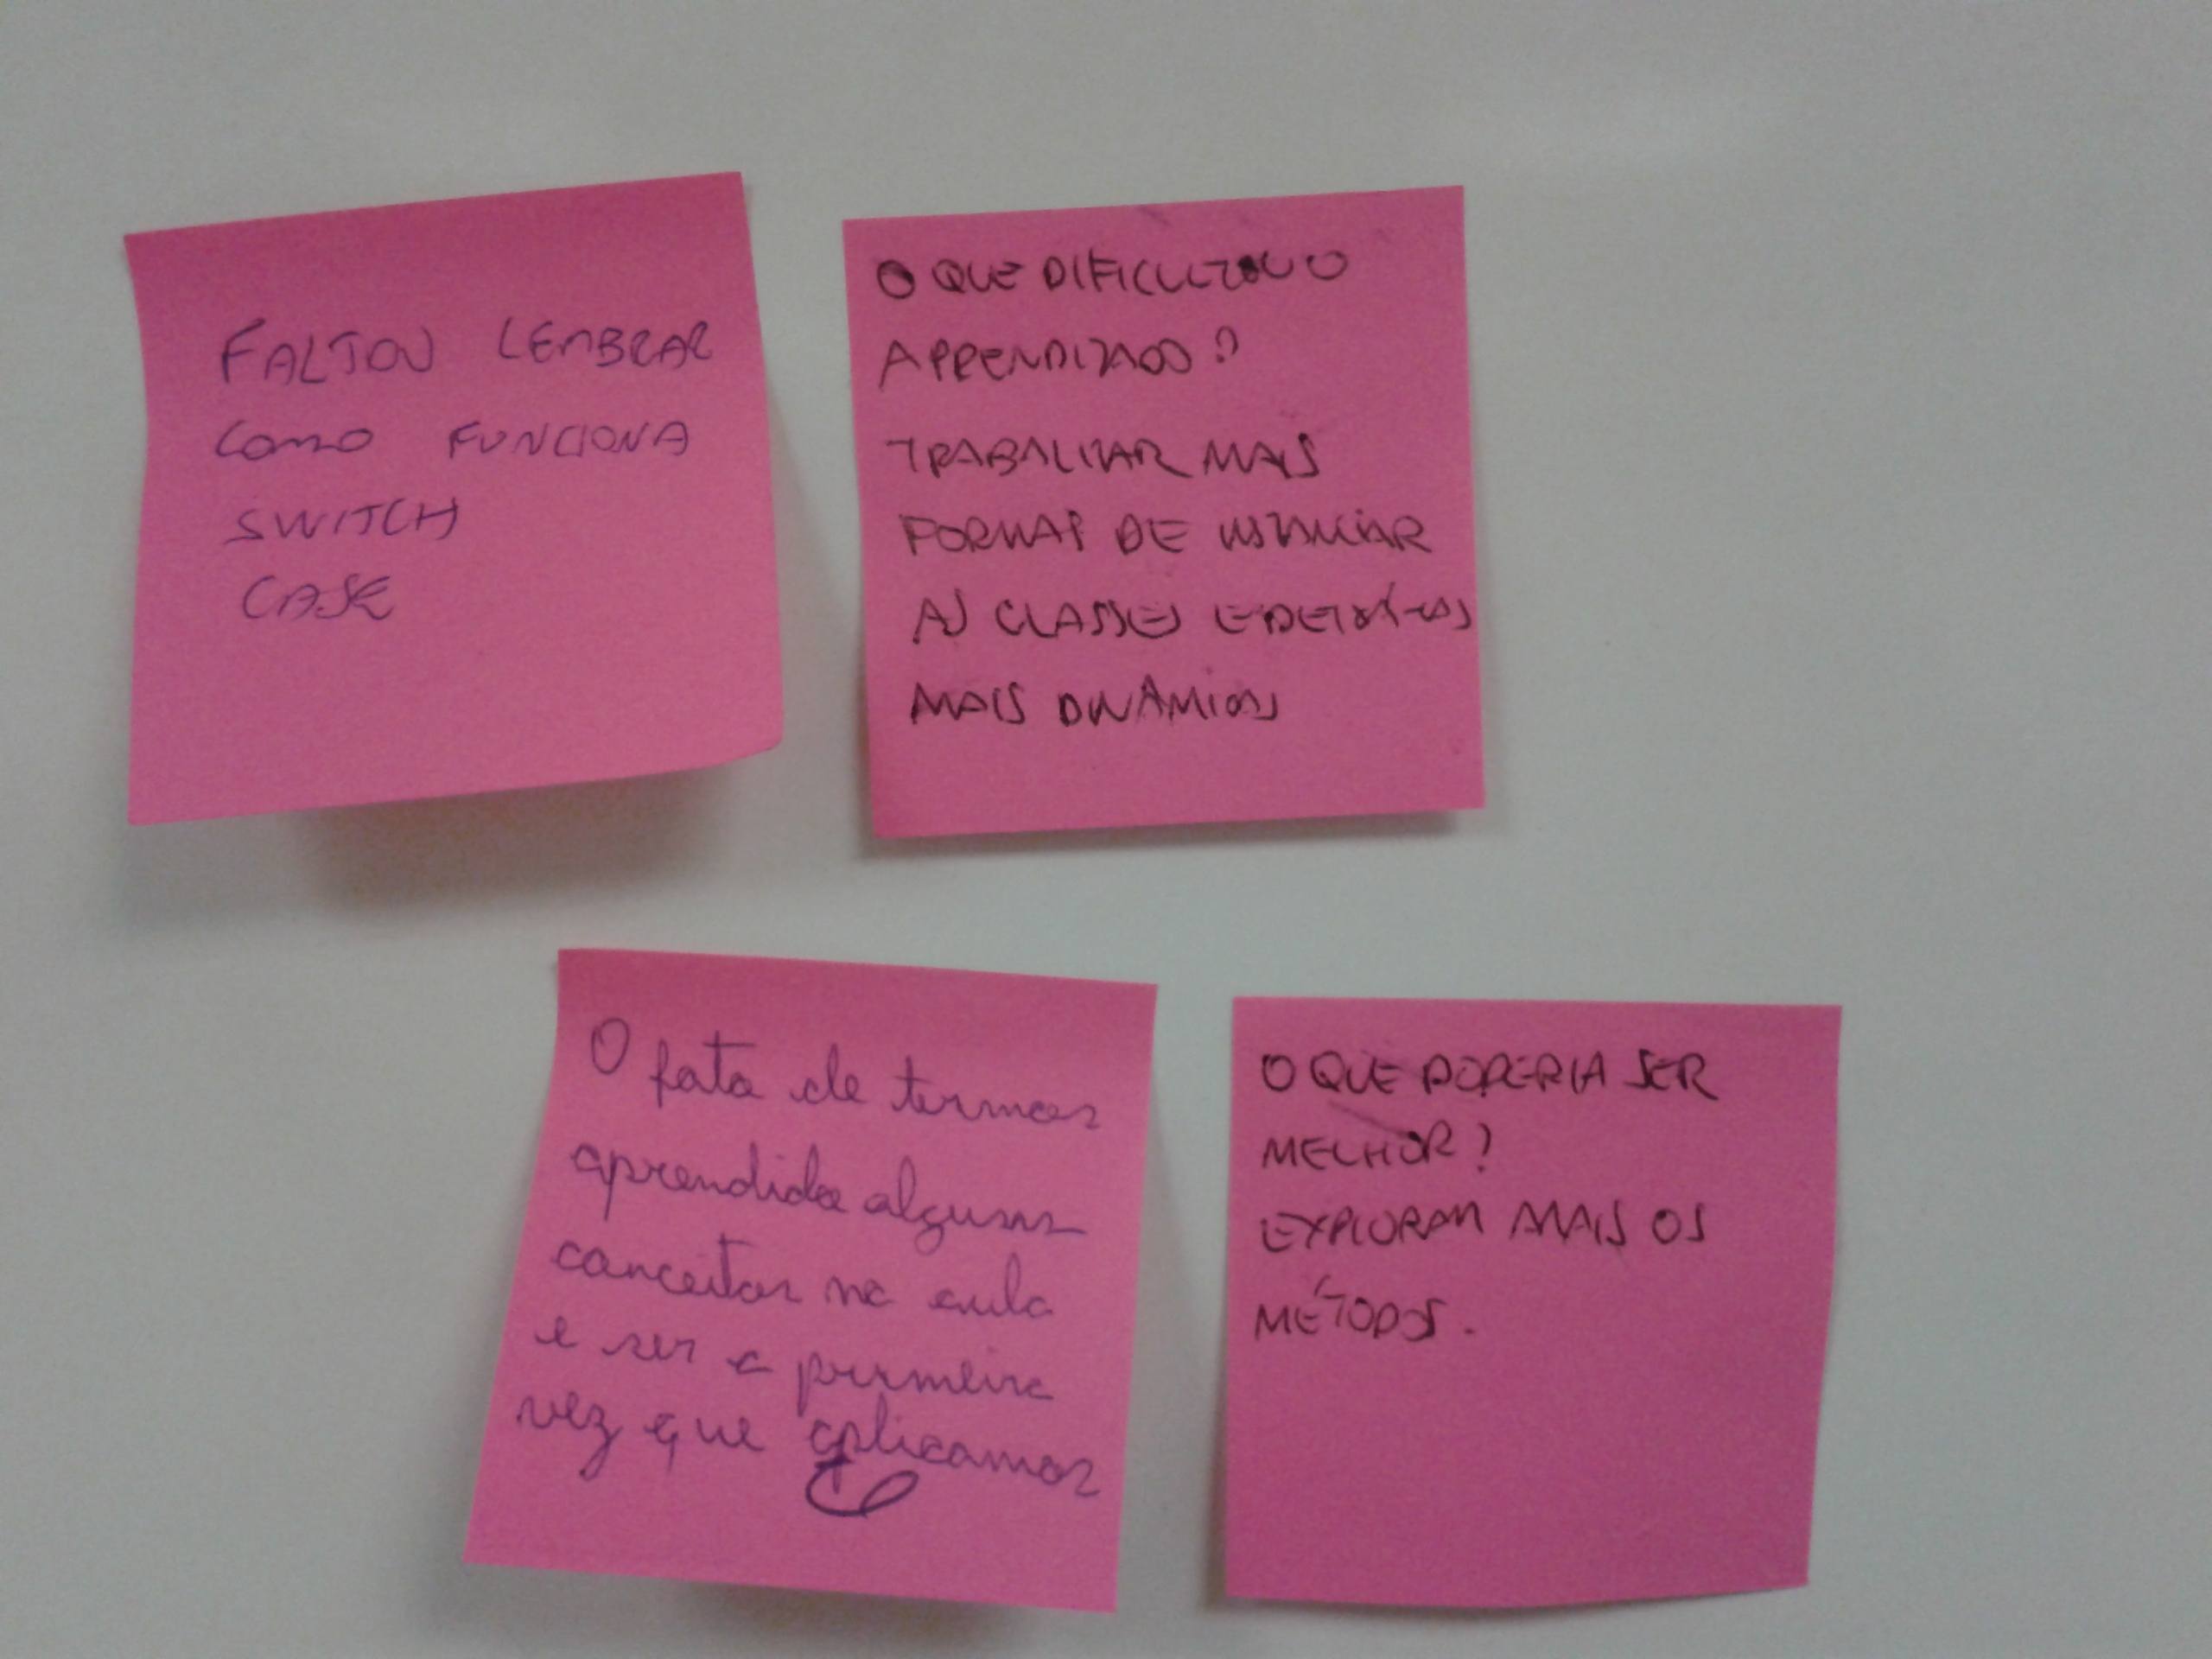 FALTOU LEMBRAR
COMO FUNCIONA
SWITCH
CASE
O QUE DIFICULTOU O
APRENDIZADO?
TRABALHAR MAIS
FORMAS DE INSTANCIAR
AS CLASSES E DEIXÁ-LAS
MAIS DINÂMICAS
O fato de termos
aprendido alguns
conceitos na aula
e ser a primeira
vez que aplicamos
O QUE PODERIA SER
MELHOR?
EXPLORAR MAIS OS
MÉTODOS.